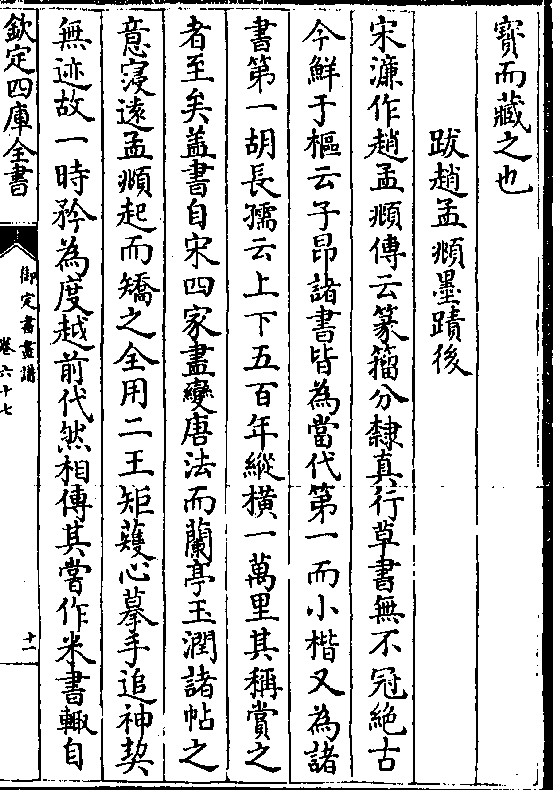 寳而藏之也
跋趙孟頫墨蹟後
宋濂作趙孟頫傳云篆籀分隸真行草書無不冠絶古
今鮮于樞云子昂諸書皆為當代第一而小楷又為諸
書第一胡長孺云上下五百年縱橫一萬里其稱賞之
者至矣盖書自宋四家盡變唐法而蘭亭玉潤諸帖之
意寖遠孟頫起而矯之全用二王矩矱心摹手追神契
無迹故一時矜為度越前代然相傳其嘗作米書輙自
欽定四庫全書
御定書畫譜
卷六十七
十一